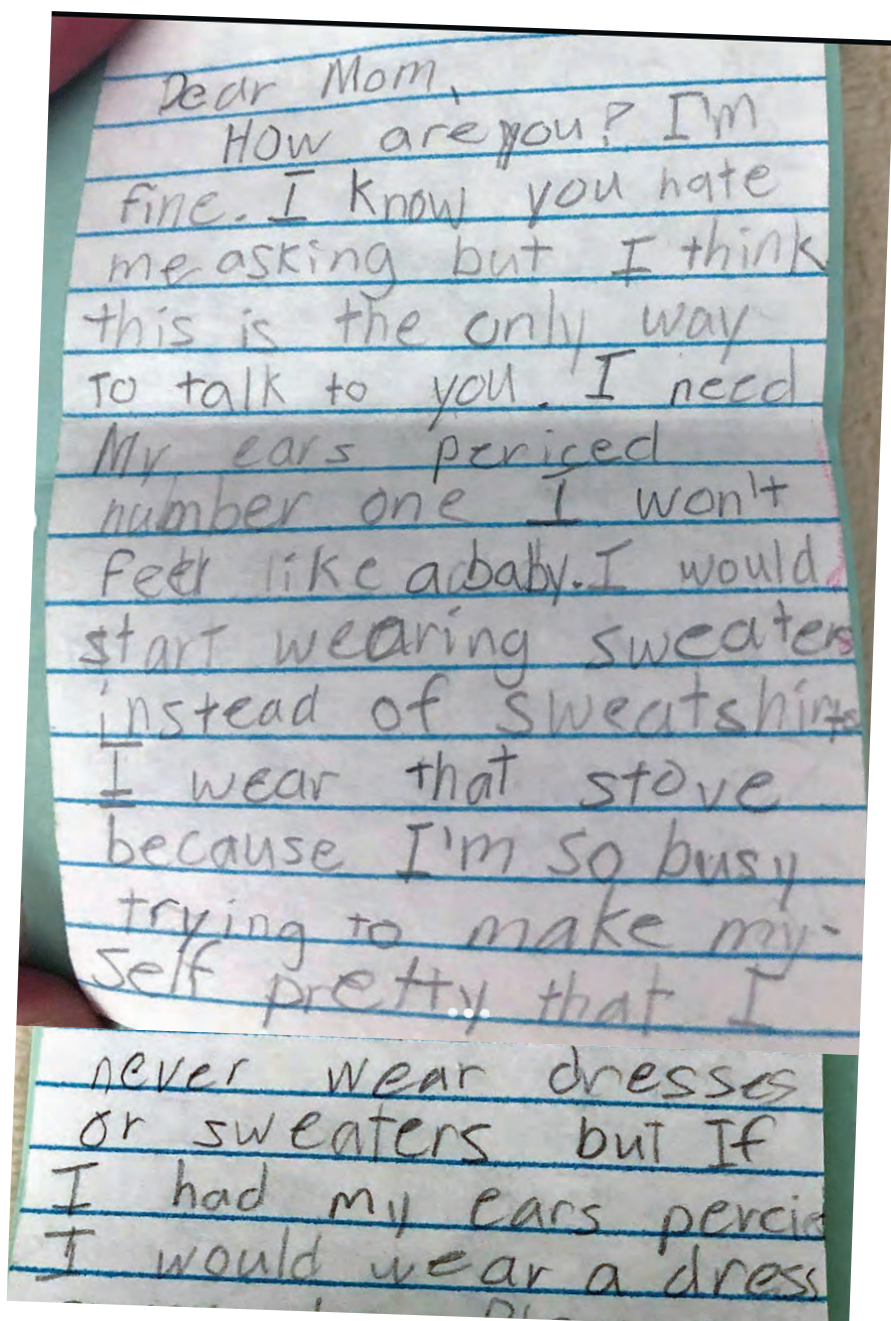 Dear Mom,
How are you? I'm
fine. I know you hate
me asking but I think
this is the only way
To talk to you. I need
My ears periced
number one I won't
feel like a baby. I would
start wearing sweaters
instead of sweatshirts
I wear that stove
because I'm so busy
trying to make my-
self pretty that I
never wear dresses
or sweaters but If
I had my ears percie
I would wear a dress